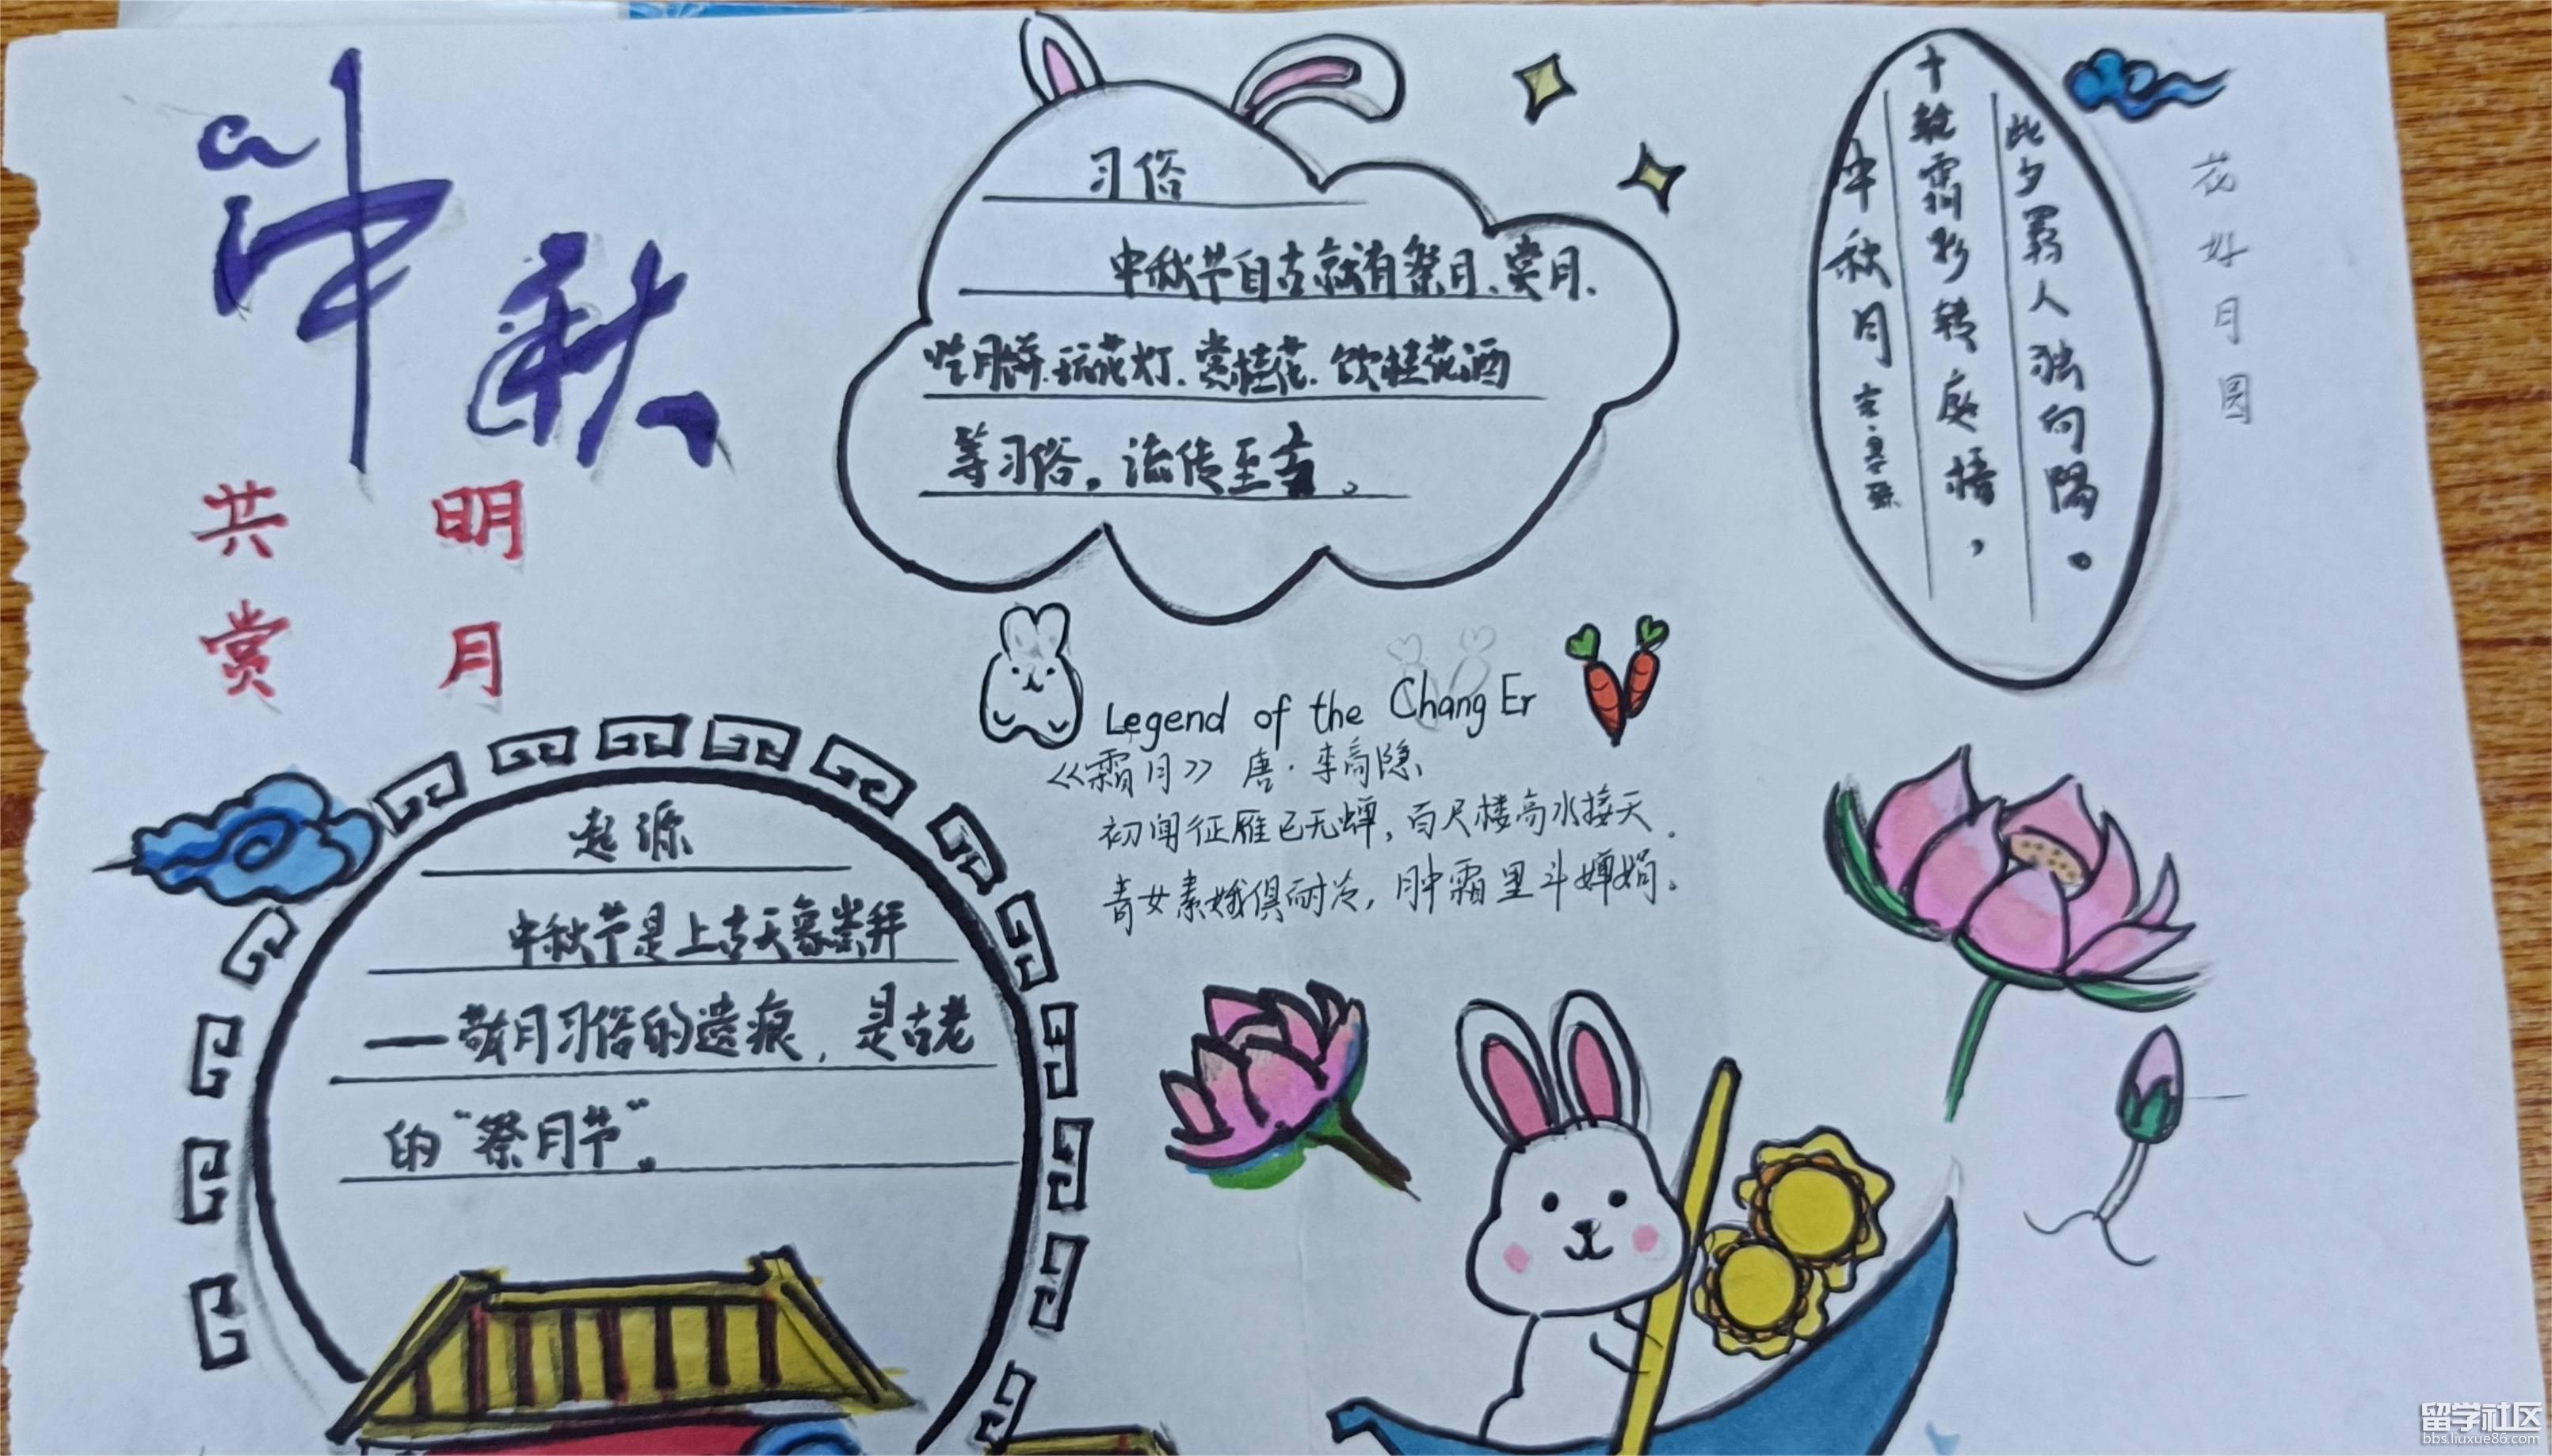 中秋
共赏
明月
习俗
中秋节自古就有祭月、赏月、
吃月饼、玩花灯、赏桂花、饮桂花酒
等习俗。流传至
中秋月 宋·晏殊
十轮霜影转庭梧，
此夕羁人独向隅。
花好月圆
Legend of the Chang Er
《霜月》 唐·李商隐
初闻征雁已无蝉，百尺楼高水接天。
青女素娥俱耐冷，月中霜里斗婵娟。
起源
中秋节是上古天象崇拜
——敬月习俗的遗痕，是古老
的“祭月节”。
留学社区
bbs.liuxue86.com